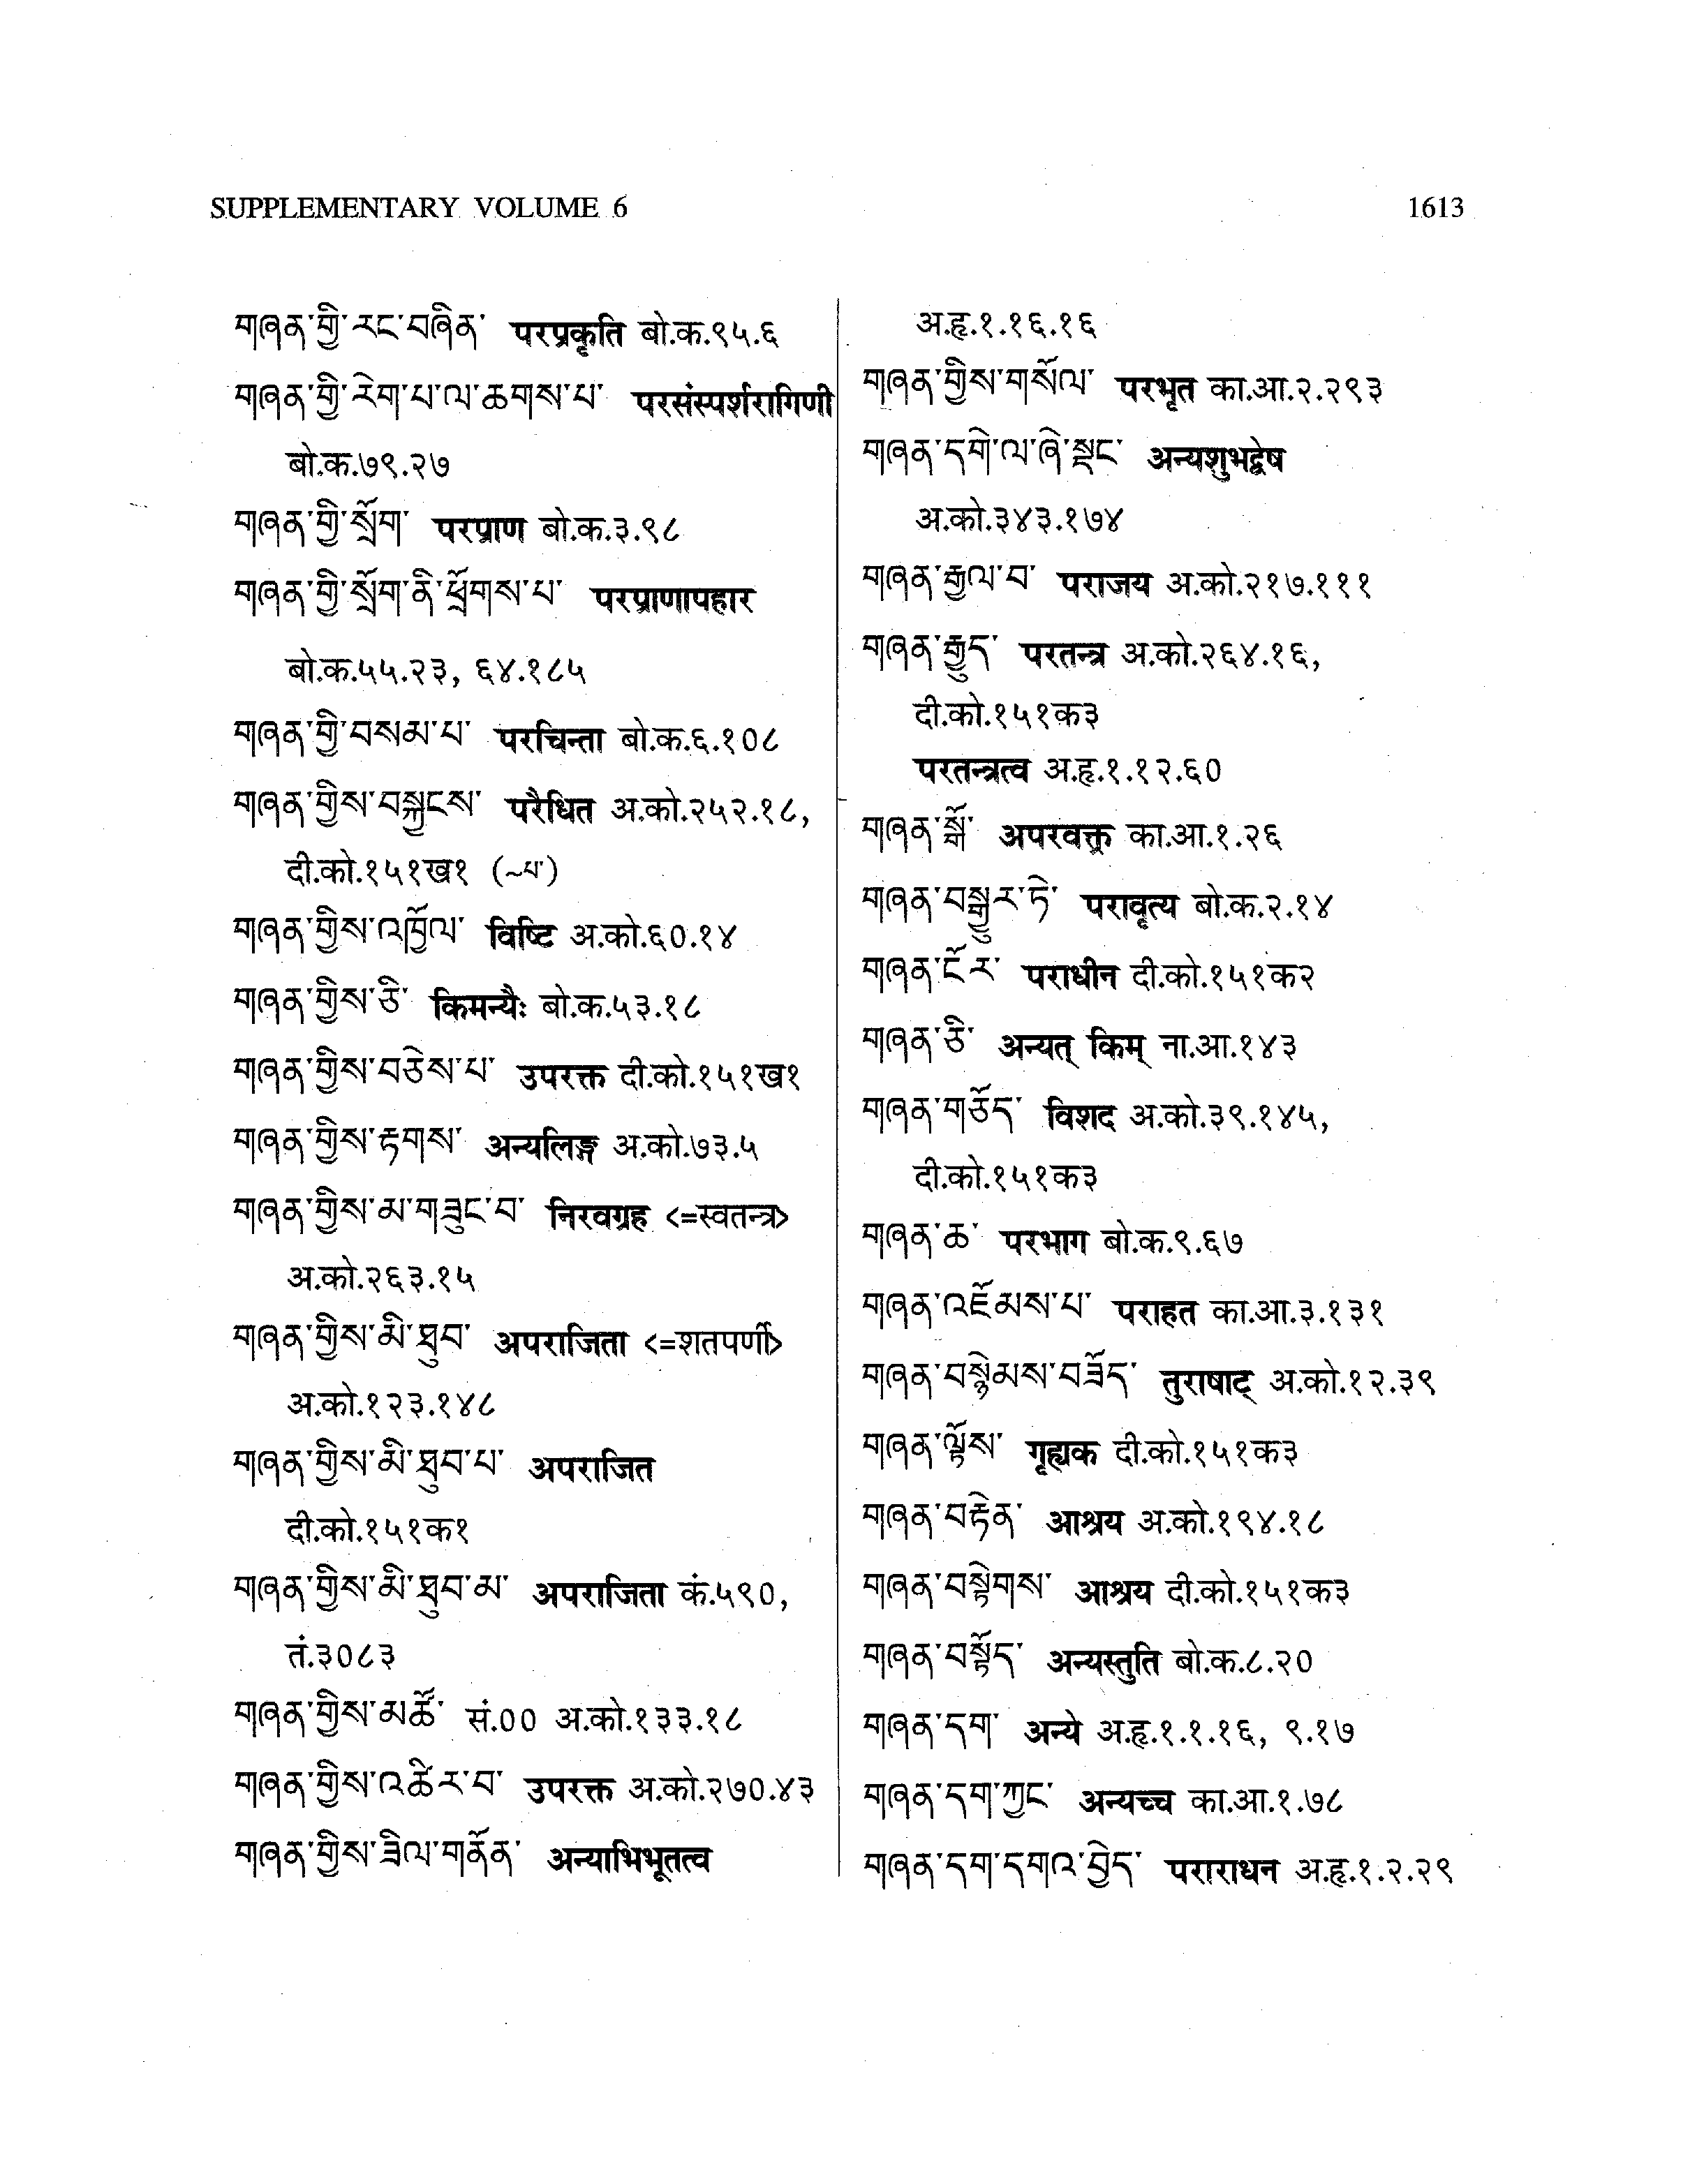 SUPPLEMENTARY VOLUME 6 1613
གཞན་གྱི་རང་བཞིན་ परप्रकृति बो.क.९५.६
གཞན་གྱི་རེག་པ་ལ་ཆགས་པ་ परसंस्पर्शरागिणी
बो.क.७९.२७
གཞན་གྱི་སྲོག་ परप्राण बो.क.३.९८
གཞན་གྱི་སྲོག་ནི་ཕྲོགས་པ་ परप्राणापहार
बो.क.५५.२३, ६४.१८५
གཞན་གྱི་བསམ་པ་ परचिन्ता बो.क.६.१०८
གཞན་གྱིས་བསྐྱངས་ परैधित अ.को.२५२.१८,
दी.को.१५१ख१ (~པ་)
གཞན་གྱིས་འཁྲོལ་ विष्टि अ.को.६०.१४
གཞན་གྱིས་ཅི་ किमन्यैः बो.क.५३.१८
གཞན་གྱིས་བཅེས་པ་ उपरक्त दी.को.१५१ख१
གཞན་གྱིས་རྟགས་ अन्यलिङ्ग अ.को.७३.५
གཞན་གྱིས་མ་གཟུང་བ་ निरवग्रह <=स्वतन्त्र>
अ.को.२६३.१५
གཞན་གྱིས་མི་ཐུབ་ अपराजिता <=शतपर्णी>
अ.को.१२३.१४८
གཞན་གྱིས་མི་ཐུབ་པ་ अपराजित
दी.को.१५१क१
གཞན་གྱིས་མི་ཐུབ་མ་ अपराजिता कं.५९०,
तं.३०८३
གཞན་གྱིས་མཚོ་ सं.०० अ.को.१३३.१८
གཞན་གྱིས་འཚིར་བ་ उपरक्त अ.को.२७०.४३
གཞན་གྱིས་ཟིལ་གནོན་ अन्याभिभूतत्व
अ.हृ.१.१६.१६
གཞན་གྱིས་གསོལ་ परभृत का.आ.२.२९३
གཞན་དགེ་ལ་ཞེ་སྡང་ अन्यशुभद्वेष
अ.को.३४३.१७४
གཞན་རྒྱལ་བ་ पराजय अ.को.२१७.१११
གཞན་རྒྱུད་ परतन्त्र अ.को.२६४.१६,
दी.को.१५१क३
परतन्त्रत्व अ.हृ.१.१२.६०
གཞན་སྒོ་ अपरवक्त्र का.आ.१.२६
གཞན་བསྒྱུར་ཏེ་ परावृत्य बो.क.२.१४
གཞན་ངོར་ पराधीन दी.को.१५१क२
གཞན་ཅི་ अन्यत् किम् ना.आ.१४३
གཞན་གཅོད་ विशद अ.को.३९.१४५,
दी.को.१५१क३
གཞན་ཆ་ परभाग बो.क.९.६७
གཞན་འཇོམས་པ་ पराहत का.आ.३.१३१
གཞན་བསྙེམས་བཟོད་ तुराषाट् अ.को.१२.३९
གཞན་ལྟོས་ गृह्यक दी.को.१५१क३
གཞན་བརྟེན་ आश्रय अ.को.१९४.१८
གཞན་བསྟེགས་ आश्रय दी.को.१५१क३
གཞན་བསྟོད་ अन्यस्तुति बो.क.८.२०
གཞན་དག་ अन्ये अ.हृ.१.१.१६, ९.१७
གཞན་དག་ཀྱང་ अन्यच्च का.आ.१.७८
གཞན་དག་དགའ་བྱེད་ पराराधन अ.हृ.१.२.२९